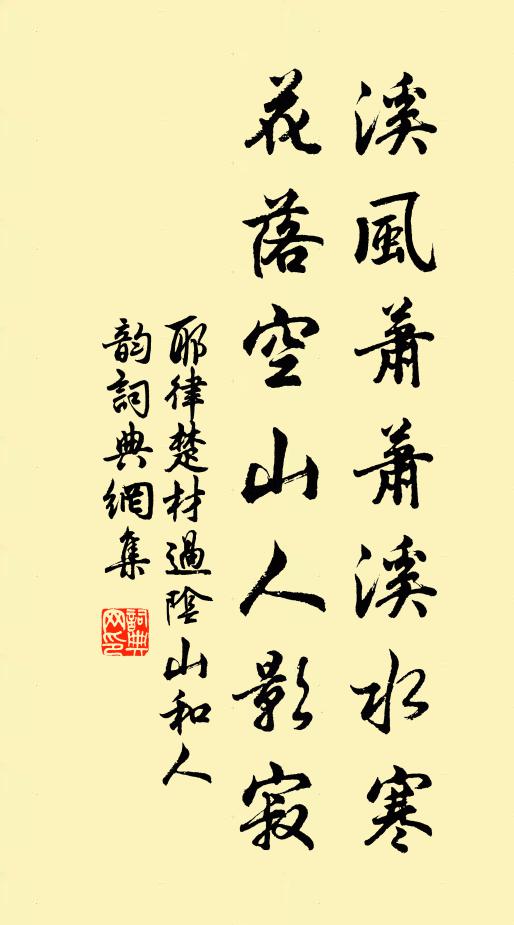 溪風蕭蕭溪水寒
花落空山人影寂
耶律楚材過陰山和人
韵詞典網集
詞典
网印